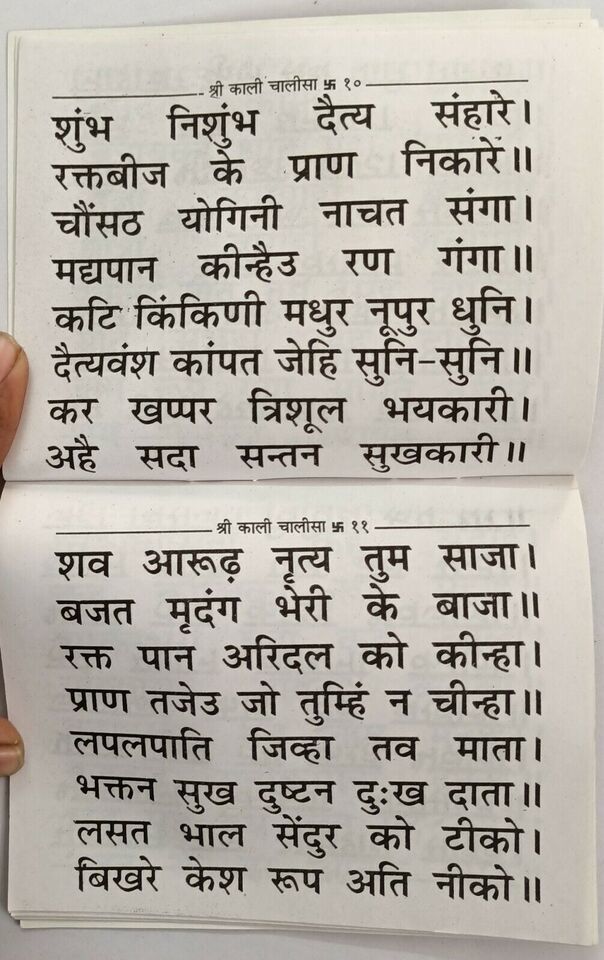 श्री काली चालीसा 卐 १०
शुंभ निशुंभ दैत्य संहारे।
रक्तबीज के प्राण निकारे॥
चौंसठ योगिनी नाचत संगा।
मद्यपान कीन्हैउ रण गंगा॥
कटि किंकिणी मधुर नूपुर धुनि।
दैत्यवंश कांपत जेहि सुनि-सुनि॥
कर खप्पर त्रिशूल भयकारी।
अहै सदा सन्तन सुखकारी॥
श्री काली चालीसा 卐 ११
शव आरूढ़ नृत्य तुम साजा।
बजत मृदंग भेरी के बाजा॥
रक्त पान अरिदल को कीन्हा।
प्राण तजेउ जो तुम्हिं न चीन्हा॥
लपलपाति जिव्हा तव माता।
भक्तन सुख दुष्टन दुःख दाता॥
लसत भाल सेंदुर को टीको।
बिखरे केश रूप अति नीको॥